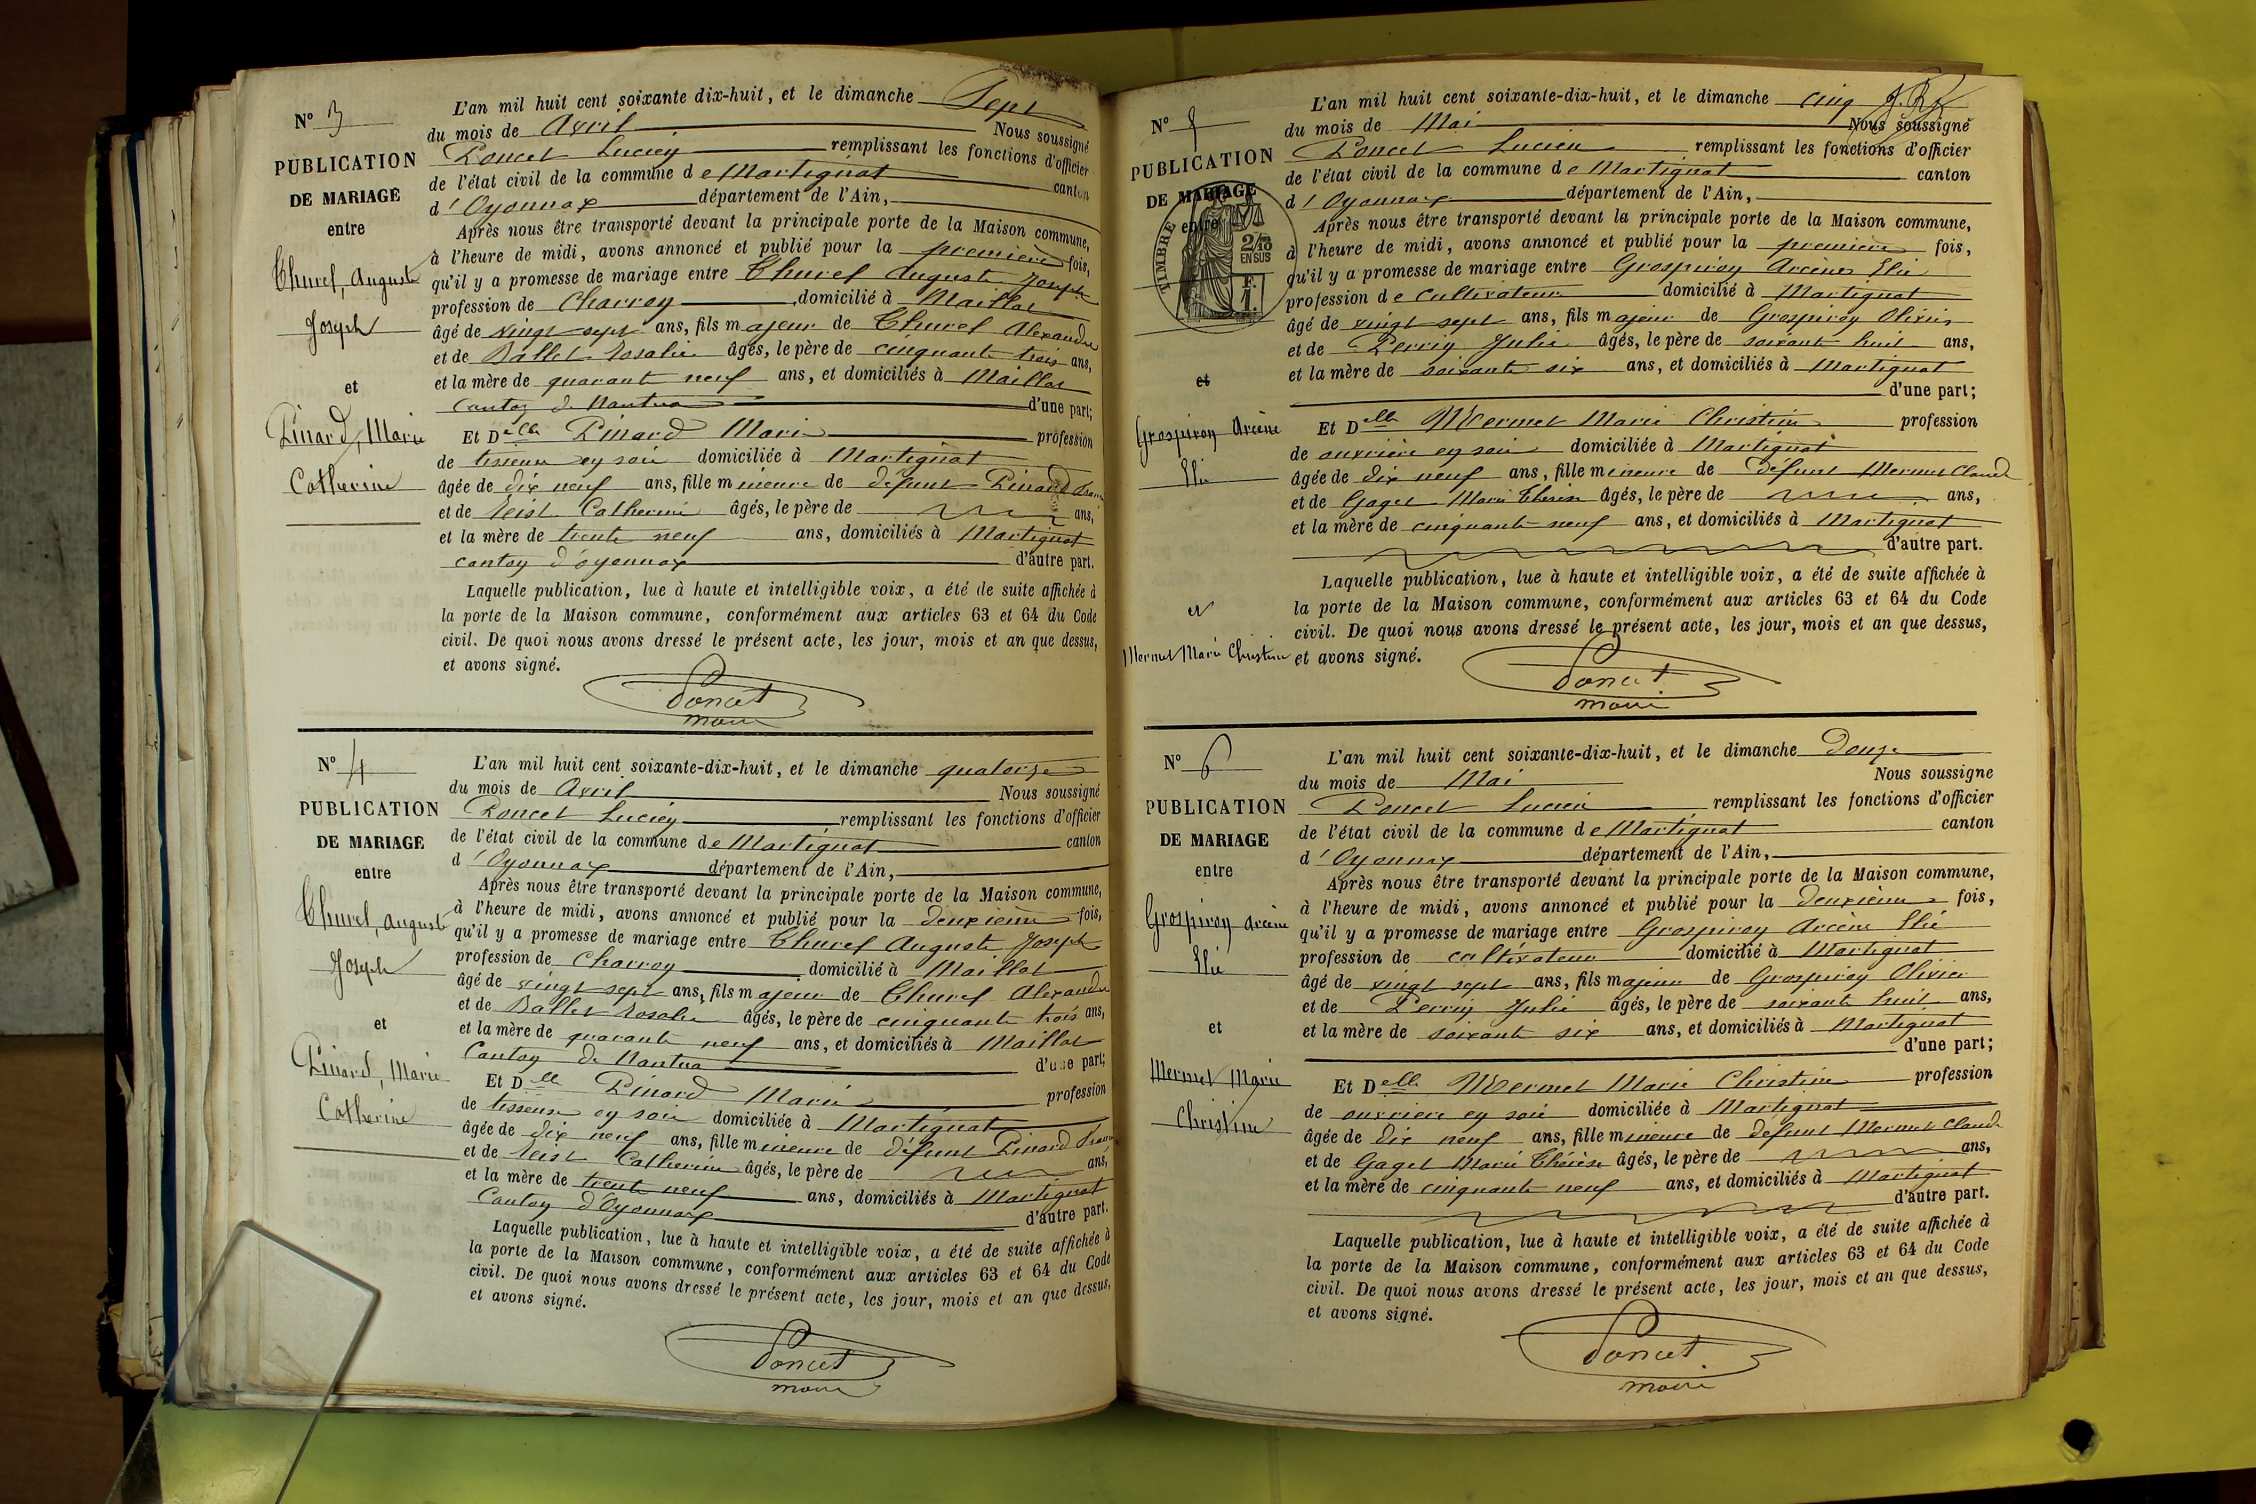 N° 3
PUBLICATION
DE MARIAGE
entre
Thurel, Auguste
Joseph
et
Pinard, Marie
Catherine
L'an mil huit cent soixante dix-huit, et le dimanche Sept
du mois de Avril Nous soussigné
Poncet Lucien remplissant les fonctions d'officier
de l'état civil de la commune de Martignat canton
d'Oyonnax département de l'Ain,
Après nous être transporté devant la principale porte de la Maison commune,
à l'heure de midi, avons annoncé et publié pour la première fois,
qu'il y a promesse de mariage entre Thurel Auguste Joseph
profession de Charron domicilié à Maillat
âgé de vingt sept ans, fils majeur de Thurel Alexandre
et de Ballet Rosalie âgés, le père de cinquante trois ans,
et la mère de quarante neuf ans, et domiciliés à Maillat
canton de Nantua d'une part;
Et Delle Pinard Marie profession
de tisseuse en soie domiciliée à Martignat
âgée de dix neuf ans, fille mineure de défunt Pinard
et de Catherine âgés, le père de ans,
et la mère de trente neuf ans, domiciliés à Martignat
canton d'oyonnax d'autre part.
Laquelle publication, lue à haute et intelligible voix, a été de suite affichée à
la porte de la Maison commune, conformément aux articles 63 et 64 du Code
civil. De quoi nous avons dressé le présent acte, les jour, mois et an que dessus,
et avons signé.
Poncet
maire
N° 4
PUBLICATION
DE MARIAGE
entre
Thurel, Auguste
Joseph
et
Pinard, Marie
Catherine
L'an mil huit cent soixante-dix-huit, et le dimanche quatorze
du mois de Avril Nous soussigné
Poncet Lucien remplissant les fonctions d'officier
de l'état civil de la commune de Martignat canton
d'Oyonnax département de l'Ain,
Après nous être transporté devant la principale porte de la Maison commune,
à l'heure de midi, avons annoncé et publié pour la deuxième fois,
qu'il y a promesse de mariage entre Thurel Auguste Joseph
profession de Charron domicilié à Maillat
âgé de vingt sept ans, fils majeur de Thurel Alexandre
et de Ballet Rosalie âgés, le père de cinquante trois ans,
et la mère de quarante neuf ans, et domiciliés à Maillat
Canton de Nantua d'une part;
Et Delle Pinard Marie profession
de tisseuse en soie domiciliée à Martignat
âgée de dix neuf ans, fille mineure de défunt Pinard
et de Catherine âgés, le père de ans,
et la mère de trente neuf ans, domiciliés à Martignat
Canton d'Oyonnax d'autre part.
Laquelle publication, lue à haute et intelligible voix, a été de suite affichée à
la porte de la Maison commune, conformément aux articles 63 et 64 du Code
civil. De quoi nous avons dressé le présent acte, les jour, mois et an que dessus,
et avons signé.
Poncet
maire
N° 5
PUBLICATION
DE MARIAGE
entre
TIMBRE
2/10
EN SUS
F.
1.
et
Grospiron Arcène
Elie
et
Mermet Marie Christine
L'an mil huit cent soixante-dix-huit, et le dimanche cinq
du mois de Mai Nous soussigné
Poncet Lucien remplissant les fonctions d'officier
de l'état civil de la commune de Martignat canton
d'Oyonnax département de l'Ain,
Après nous être transporté devant la principale porte de la Maison commune,
à l'heure de midi, avons annoncé et publié pour la première fois,
qu'il y a promesse de mariage entre Grospiron Arcène Elie
profession de cultivateur domicilié à Martignat
âgé de vingt sept ans, fils majeur de Grospiron Olivier
et de Perrin Julie âgés, le père de soixante huit ans,
et la mère de soixante six ans, et domiciliés à Martignat
d'une part;
Et Delle Mermet Marie Christine profession
de ouvrière en soie domiciliée à Martignat
âgée de dix neuf ans, fille mineure de défunt Mermet Claude
et de Gaget Marie Thérèse âgés, le père de ans,
et la mère de cinquante neuf ans, et domiciliés à Martignat
d'autre part.
Laquelle publication, lue à haute et intelligible voix, a été de suite affichée à
la porte de la Maison commune, conformément aux articles 63 et 64 du Code
civil. De quoi nous avons dressé le présent acte, les jour, mois et an que dessus,
et avons signé.
Poncet
maire
N° 6
PUBLICATION
DE MARIAGE
entre
Grospiron Arcène
Elie
et
Mermet Marie
Christine
L'an mil huit cent soixante-dix-huit, et le dimanche douze
du mois de Mai Nous soussigné
Poncet Lucien remplissant les fonctions d'officier
de l'état civil de la commune de Martignat canton
d'Oyonnax département de l'Ain,
Après nous être transporté devant la principale porte de la Maison commune,
à l'heure de midi, avons annoncé et publié pour la deuxième fois,
qu'il y a promesse de mariage entre Grospiron Arcène Elie
profession de cultivateur domicilié à Martignat
âgé de vingt sept ans, fils majeur de Grospiron Olivier
et de Perrin Julie âgés, le père de soixante huit ans,
et la mère de soixante six ans, et domiciliés à Martignat
d'une part;
Et Delle Mermet Marie Christine profession
de ouvrière en soie domiciliée à Martignat
âgée de dix neuf ans, fille mineure de défunt Mermet Claude
et de Gaget Marie Thérèse âgés, le père de ans,
et la mère de cinquante neuf ans, et domiciliés à Martignat
d'autre part.
Laquelle publication, lue à haute et intelligible voix, a été de suite affichée à
la porte de la Maison commune, conformément aux articles 63 et 64 du Code
civil. De quoi nous avons dressé le présent acte, les jour, mois et an que dessus,
et avons signé.
Poncet
maire